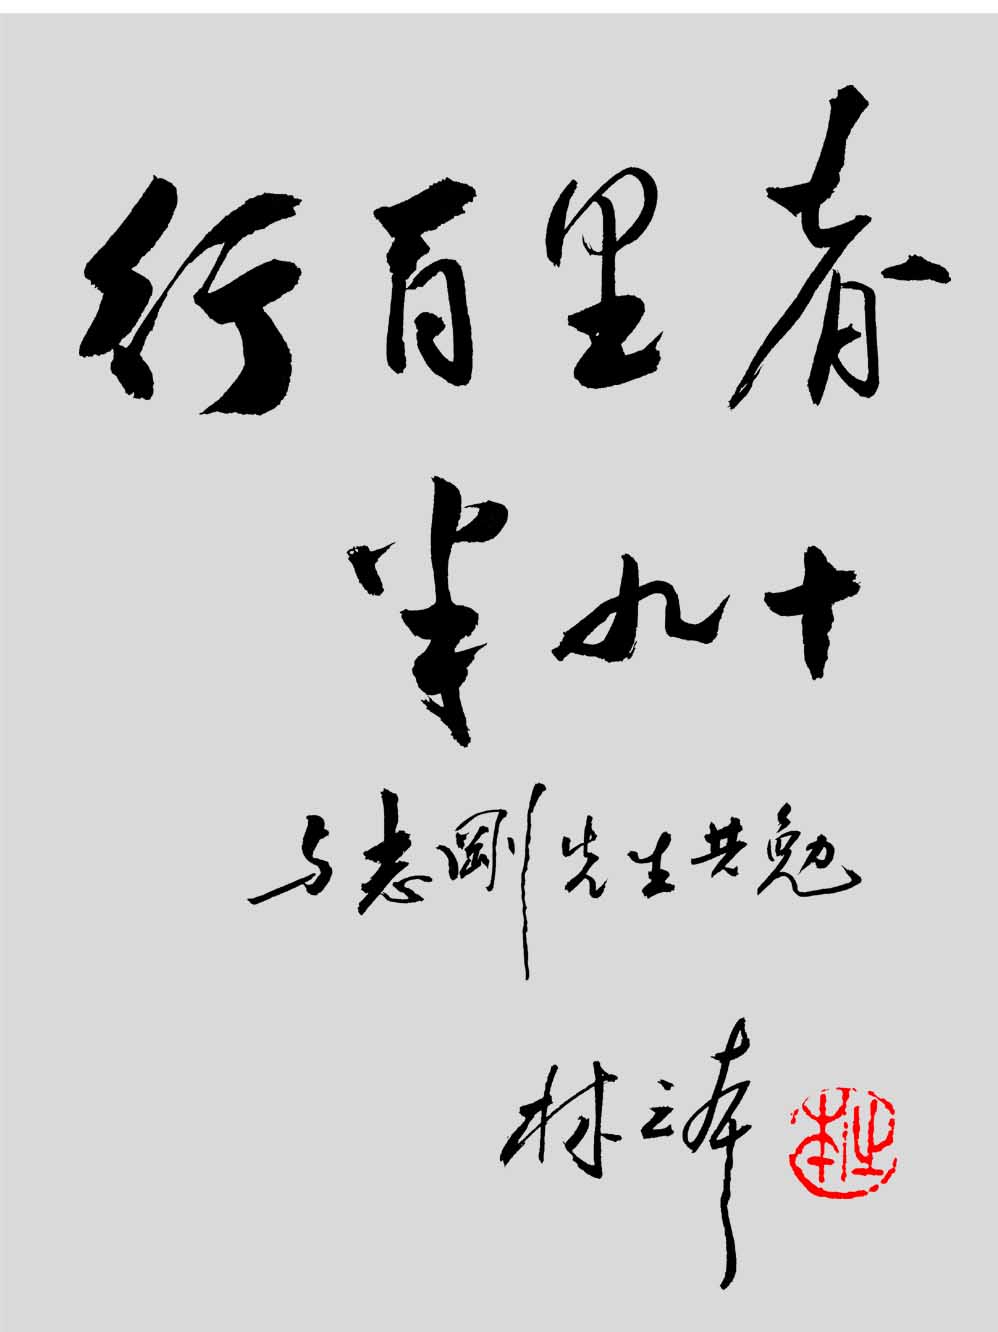 行百里者
半九十
与志剛先生共勉
林之本